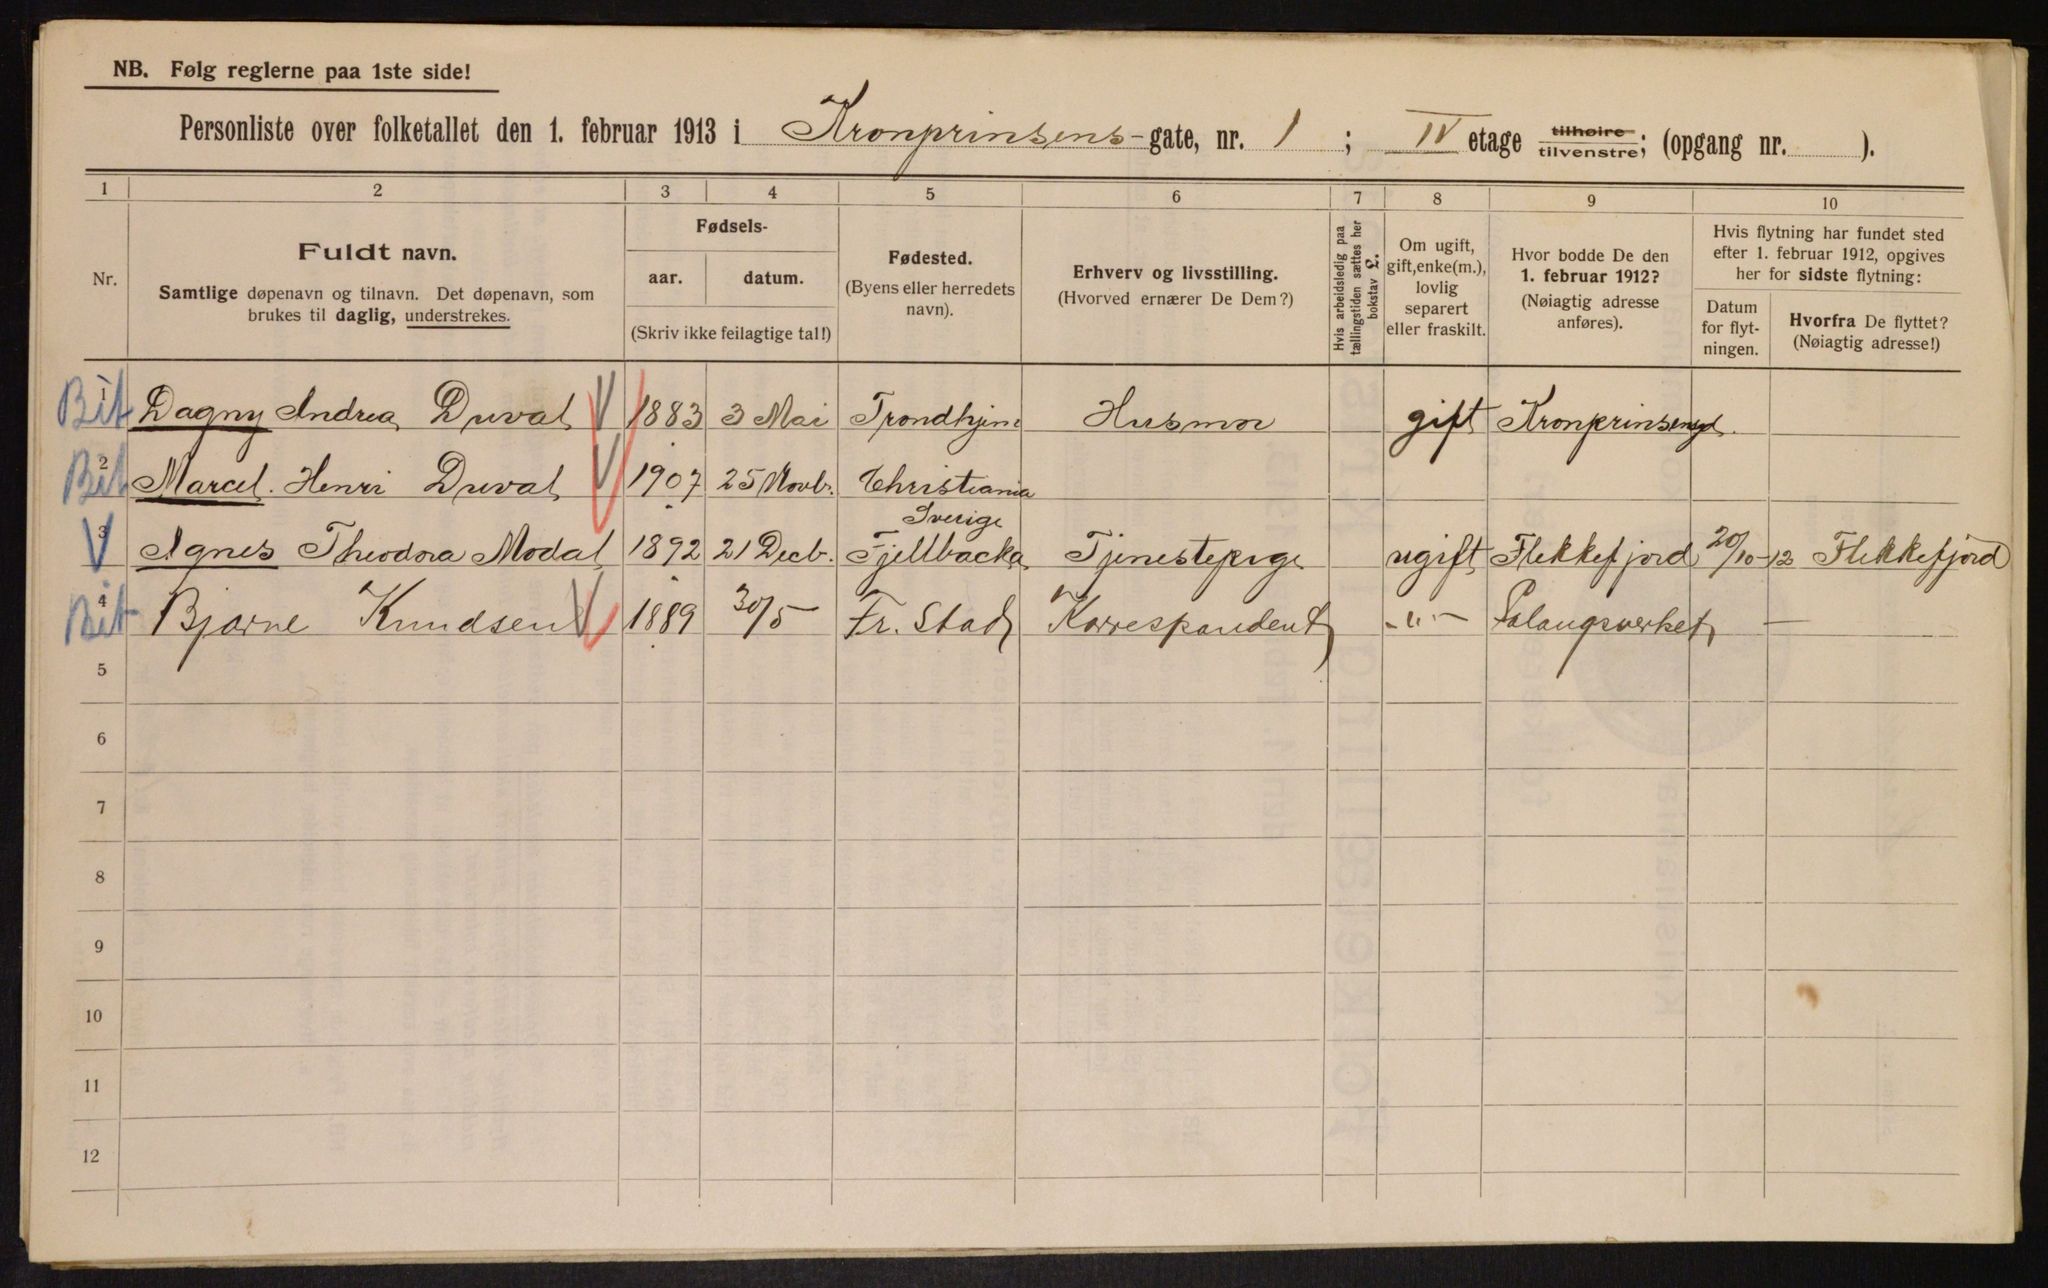 NB. Følg reglerne paa 1ste side!
Personliste over folketallet den 1. februar 1913 i Kronprinsens-gate, nr. 1 ; IV etage tilhøire tilvenstre; (opgang nr. ).
1 2 3 4 5 6 7 8 9 10
Nr.
Fuldt navn.
Samtlige døpenavn og tilnavn. Det døpenavn, som
brukes til daglig, understrekes.
Fødsels-
aar. datum.
(Skriv ikke feilagtige tal!)
Fødested.
(Byens eller herredets
navn).
Erhverv og livsstilling.
(Hvorved ernærer De Dem?)
Hvis arbeidsledig paa
tællingstiden sættes her
bokstav £.
Om ugift,
gift, enke(m.),
lovlig
separert
eller fraskilt.
Hvor bodde De den
1. februar 1912?
(Nøiagtig adresse
anføres).
Hvis flytning har fundet sted
efter 1. februar 1912, opgives
her for sidste flytning:
Datum
for flyt-
ningen.
Hvorfra De flyttet?
(Nøiagtig adresse!)
Bit 1 Dagny Andrea Duval V 1883 3 Mai Trondhjem Husmor gift Kronprinsensgt.
Bit 2 Marcel. Henri Duval V 1907 25 Novbr. Christiania
Sverige
V 3 Agnes Theodora Modal 1892 21 Decb. Fjellbacka Tjenestepige ugift Flekkefjord 20/10-12 Flekkefjord
Bit 4 Bjarne Knudsen V 1889 30/5 Fr. Stad Korrespondent -"- —
5
6
7
8
9
10
11
12